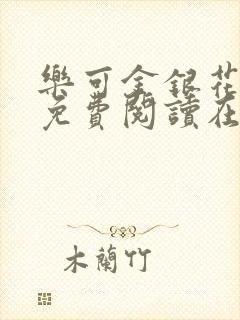 樂可金銀花
免費閱讀在
木蘭竹